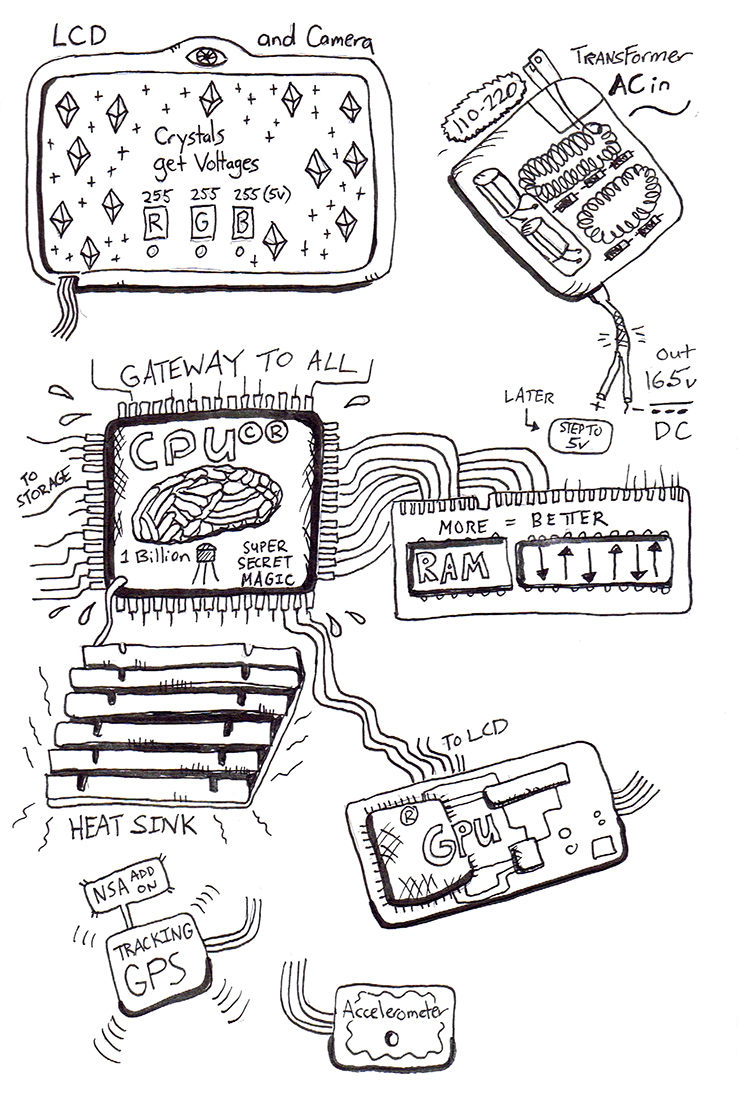 LCD
and Camera
Crystals
get Voltages
255 255 255 (5v)
R G B
TRANSFormer
AC in
110-220
out
16.5v
DC
+ -
LATER
STEP TO
5V
GATEWAY TO ALL
CPU © ®
TO
STORAGE
1 Billion
SUPER
SECRET
MAGIC
MORE = BETTER
RAM
HEAT SINK
TO LCD
®
GPU
NSA ADD
ON
TRACKING
GPS
Accelerometer